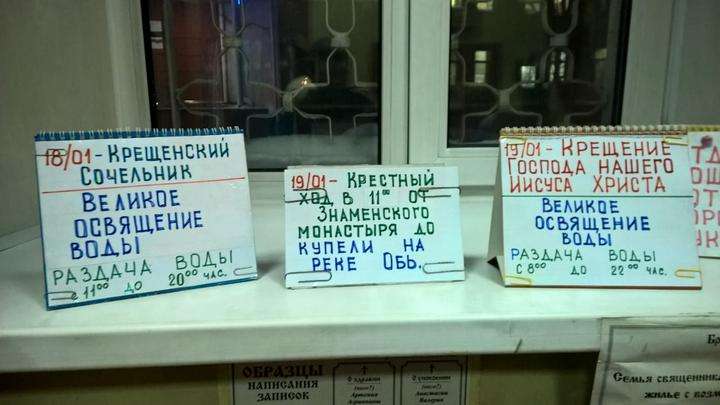 18/01 - Крещенский
Сочельник
Великое
освящение
воды
Раздача воды
с 11⁰⁰ до 20⁰⁰ час.
19/01 - Крестный
ход в 11⁰⁰ от
Знаменского
монастыря до
купели на
реке Обь.
19/01 - Крещение
Господа нашего
Иисуса Христа
Великое
освящение
воды
Раздача воды
с 8⁰⁰ до 22⁰⁰ час.
ОБРАЗЦЫ
НАПИСАНИЯ
ЗАПИСОК
О здравии
О упокоении
Семья священника
жилье с